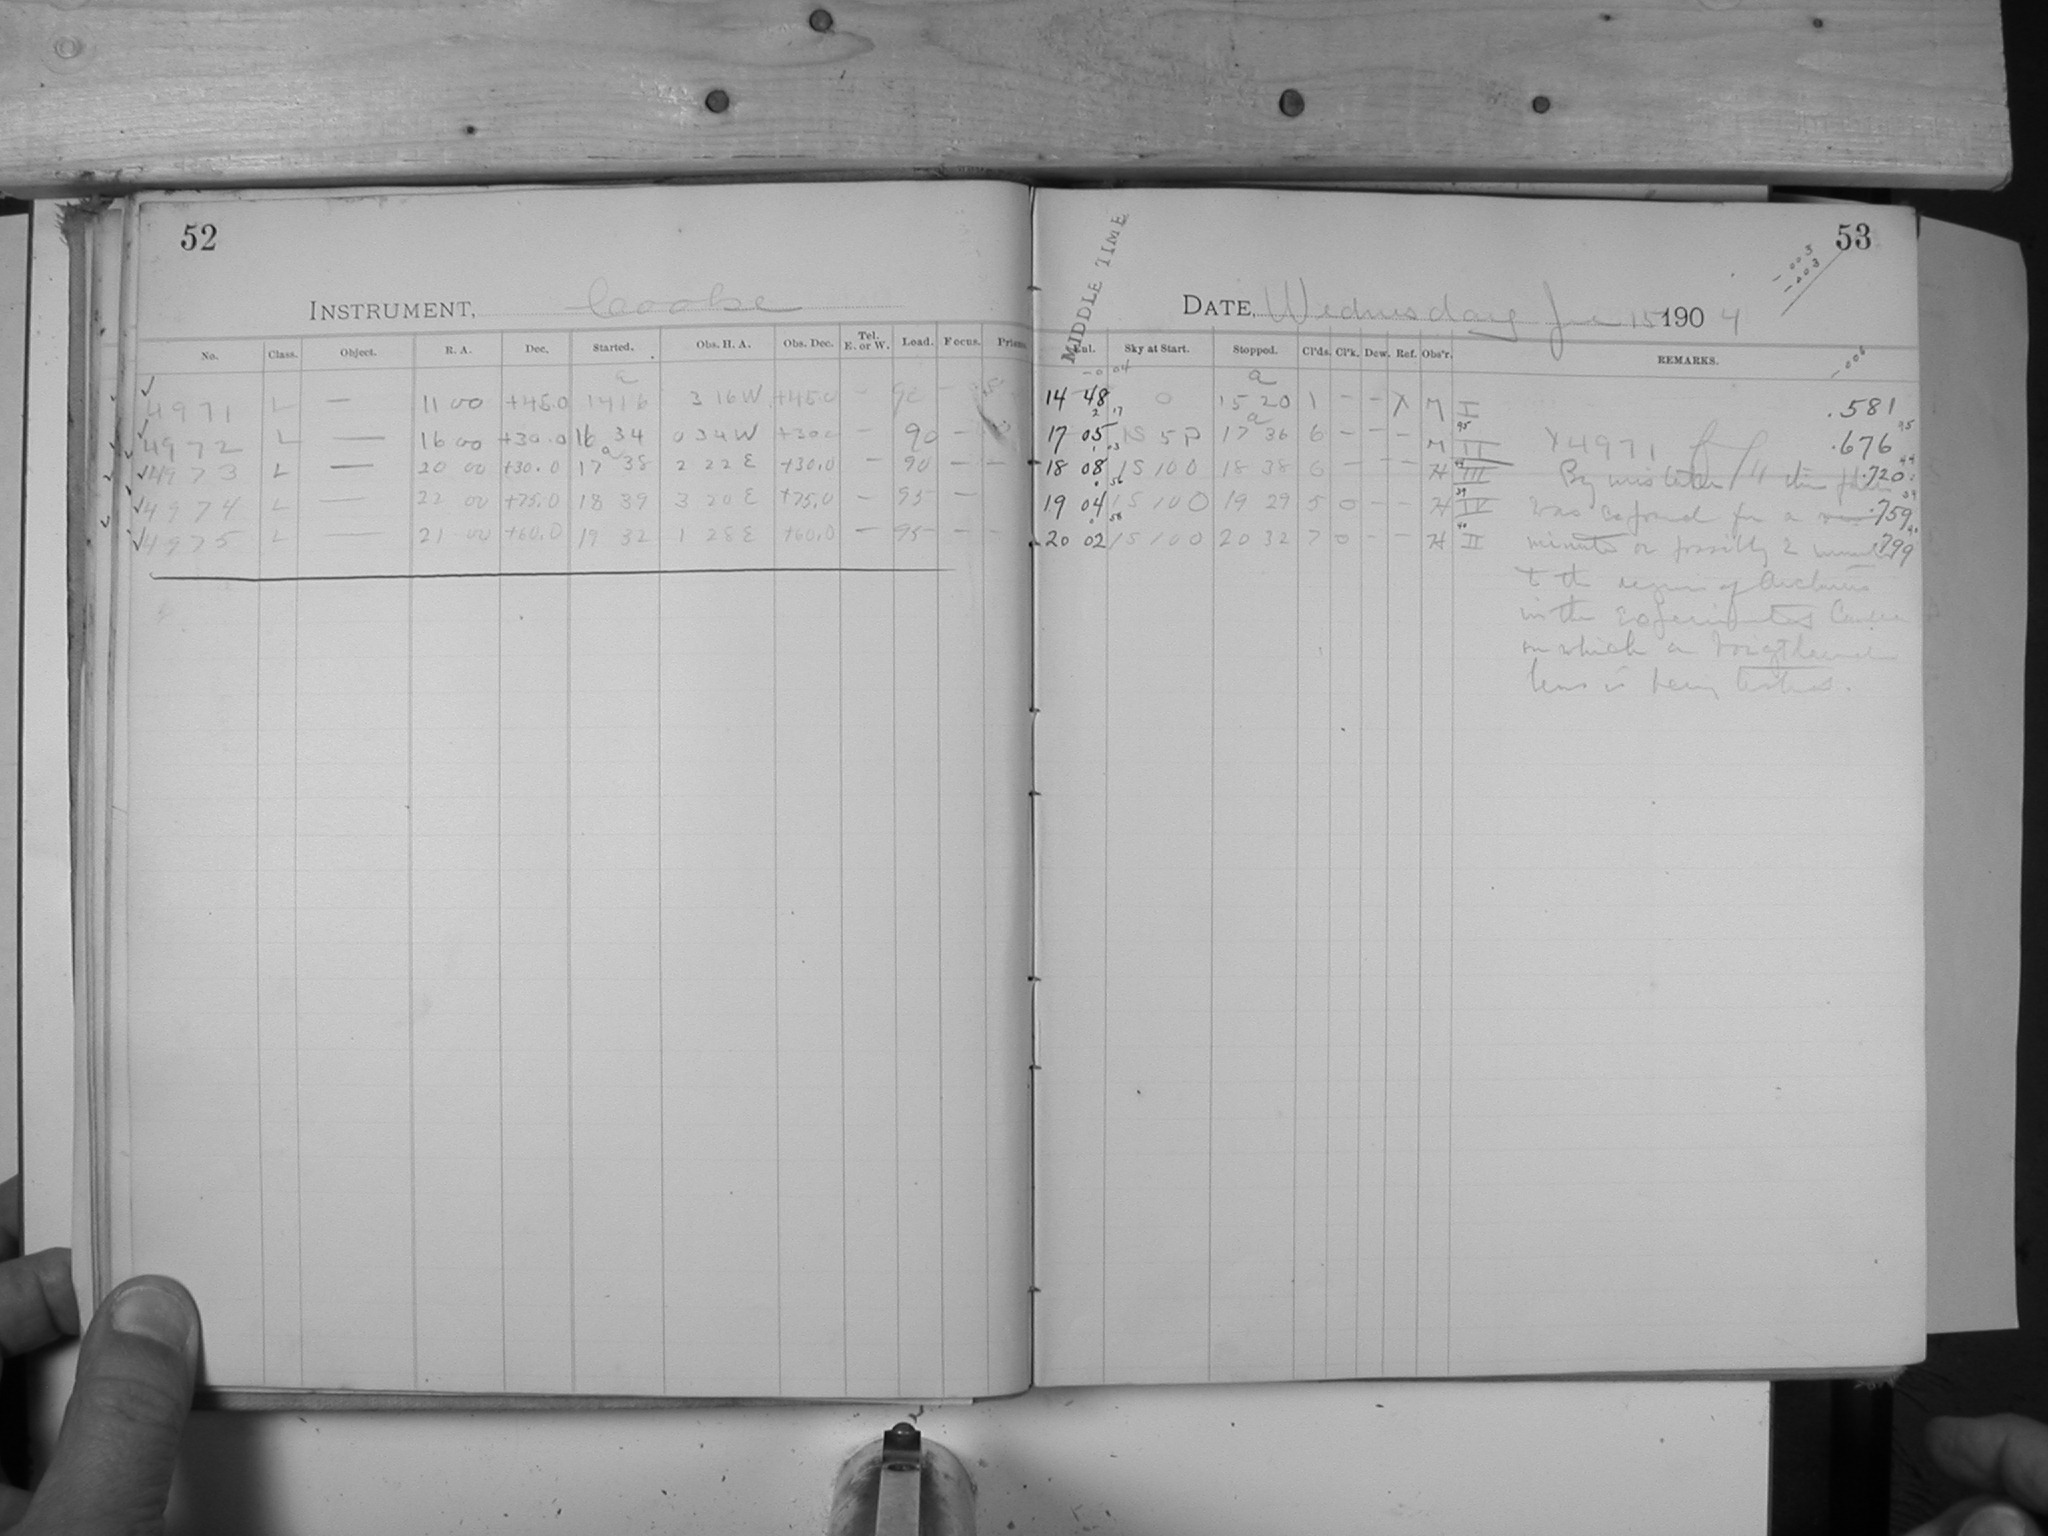 52
INSTRUMENT, Cooke
No. Class. Object. R. A. Dec. Started. Obs. H. A. Obs. Dec. Tel. E. or W. Load. Focus. Prism
4971 L — 11 00 +45.0 a 14 16 3 16 W +45.0 — 90 —
4972 L — 16 00 +30.0 16 34 0 34 W +30.0 — 90 —
4973 L — 20 00 +30.0 a 17 38 2 22 E +30.0 — 90 — —
4974 L — 22 00 +75.0 18 39 3 20 E +75.0 — 95 —
4975 L — 21 00 +60.0 19 32 1 28 E +60.0 — 95 — —
53
MIDDLE TIME
-003
-003
DATE, Wednesday June 15 1904
Cul. Sky at Start. Stopped. Cl'ds. Cl'k. Dew. Ref. Obs'r. REMARKS.
14 48 0 a 15 20 1 — — X M I .581
17 05 1S 5P a 17 36 6 — — — M II X4971 .676
18 08 1S 10 0 18 38 6 — — — H III By mistake this plate .720
19 04 1S 10 0 19 29 5 0 — — H IV was exposed for a .759
20 02 1S 10 0 20 32 7 0 — — H II minute or possibly 2 minutes .799
to the region of Arcturus
in the Experimental Camera
in which a Voigtlander
lens is being tested.